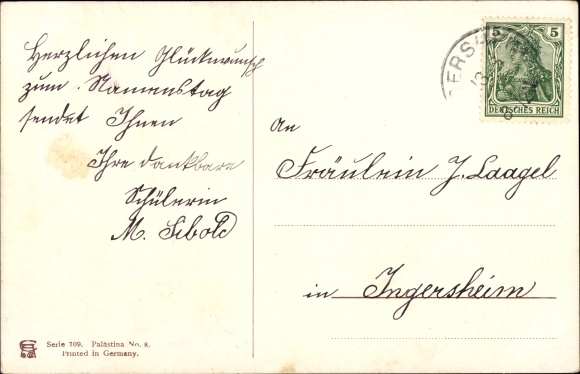 Herzlichen Glückwunsch
zum Namenstag
sendet Ihnen
Ihre dankbare
Schülerin
M. Sibold
5 5
DEUTSCHES REICH
An
Fräulein J. Laagel
in Ingersheim
Serie 709. Palästina No. 8.
Printed in Germany.